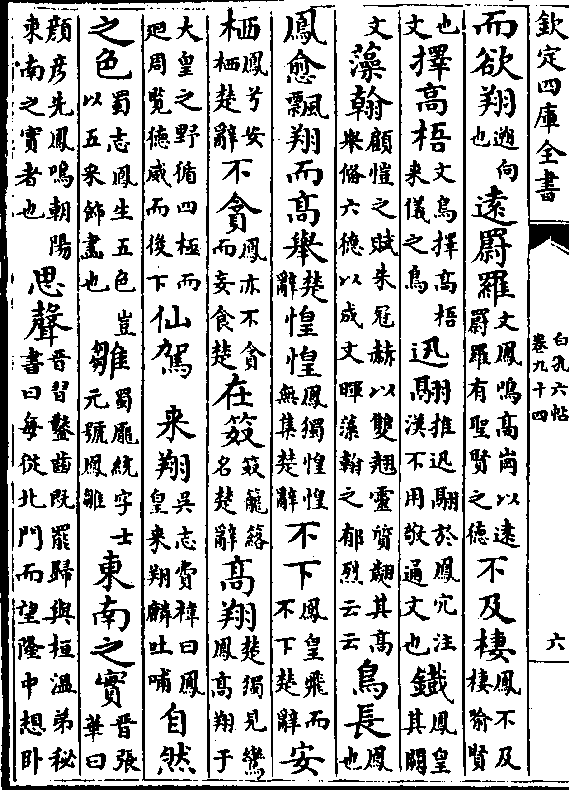 欽定四庫全書
白孔六帖
卷九十四
六
而欲翔遡向也遠罻羅文鳳鳴高崗以遠罻羅有聖賢之德不及棲鳳不及棲喻賢
也文擇高梧文鳥擇高梧来儀之鳥迅翮推迅翮於鳳穴注漢不用敬通文也鐵鳳皇其闕
文藻翰顧愷之賦朱冠赫以雙翹靈質翽其高舉備六德以成文暉藻翰之郁烈云云鳥長鳳也
鳳愈飄翔而高舉楚辭惶惶鳳獨惶惶無集楚辭不下鳳皇飛而不下楚辭安
栖鳳兮安栖楚辭不貪鳳亦不貪而妄食楚在笯笯籠落名楚辭高翔楚獨見鸞鳳高翔于
大皇之野循四極而廻周覽德威而後下仙駕来翔吳志賞禕曰鳳皇来翔麟吐哺自然
之色蜀志鳳生五色豈以五采飾畫也雛蜀龐統字士元號鳳雛東南之寳晉張華曰
顔彦先鳳鳴朝陽東南之寳者也思聲晉習鑿齒既罷歸與桓温弟秘書曰每從北門而望隆中想臥